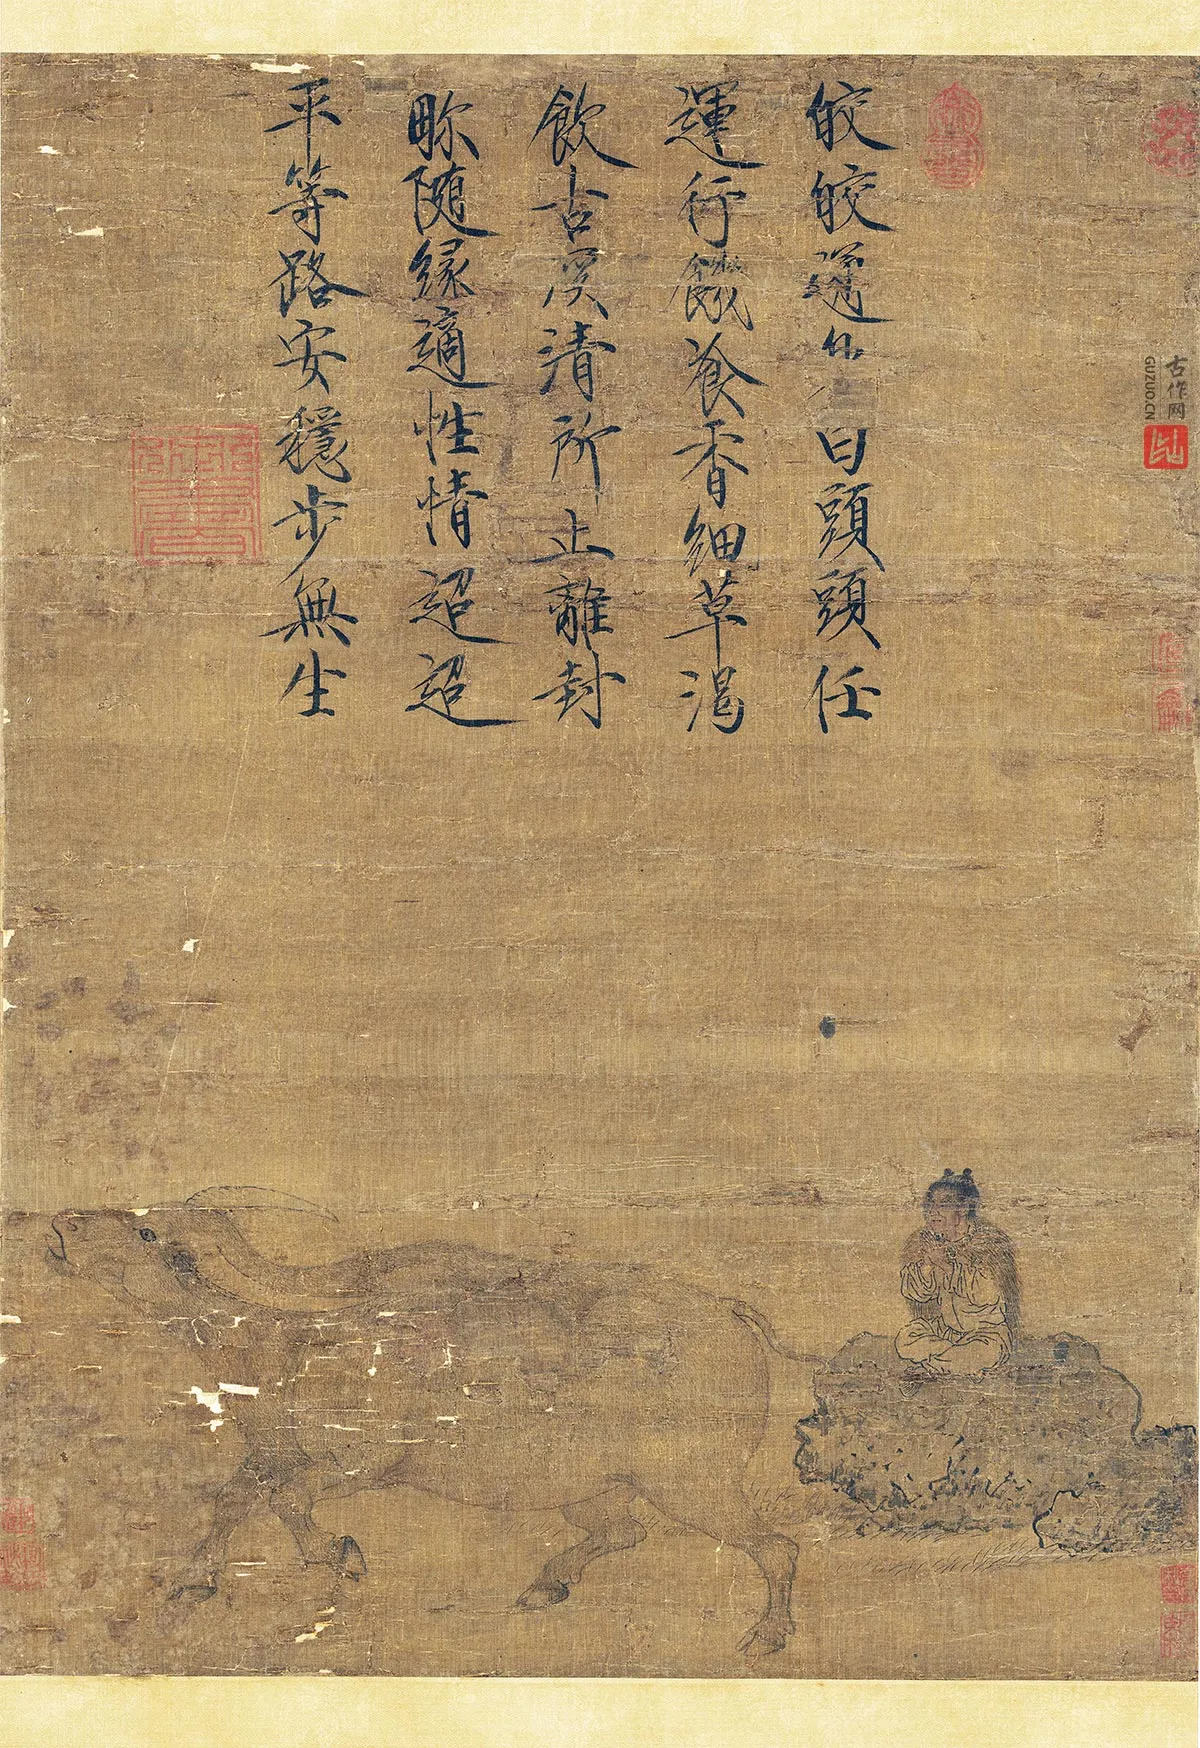 皎皎白頭頭任
運行饑飡香細草渴
飲古溪清所止離封
畛隨緣適性情迢迢
平等路安穩步無生
古作网
GUZUO.CN